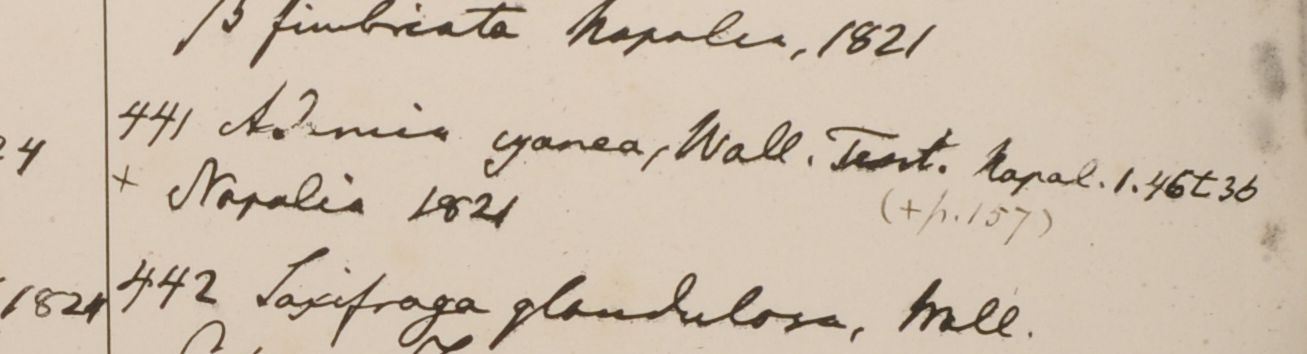 β fimbriata Napalia, 1821
441 Adamia cyanea, Wall. Tent. Napal. 1. 46 t 36
24
+ Napalia 1821
(+p. 157)
1821 442 Saxifraga glandulosa, Wall.